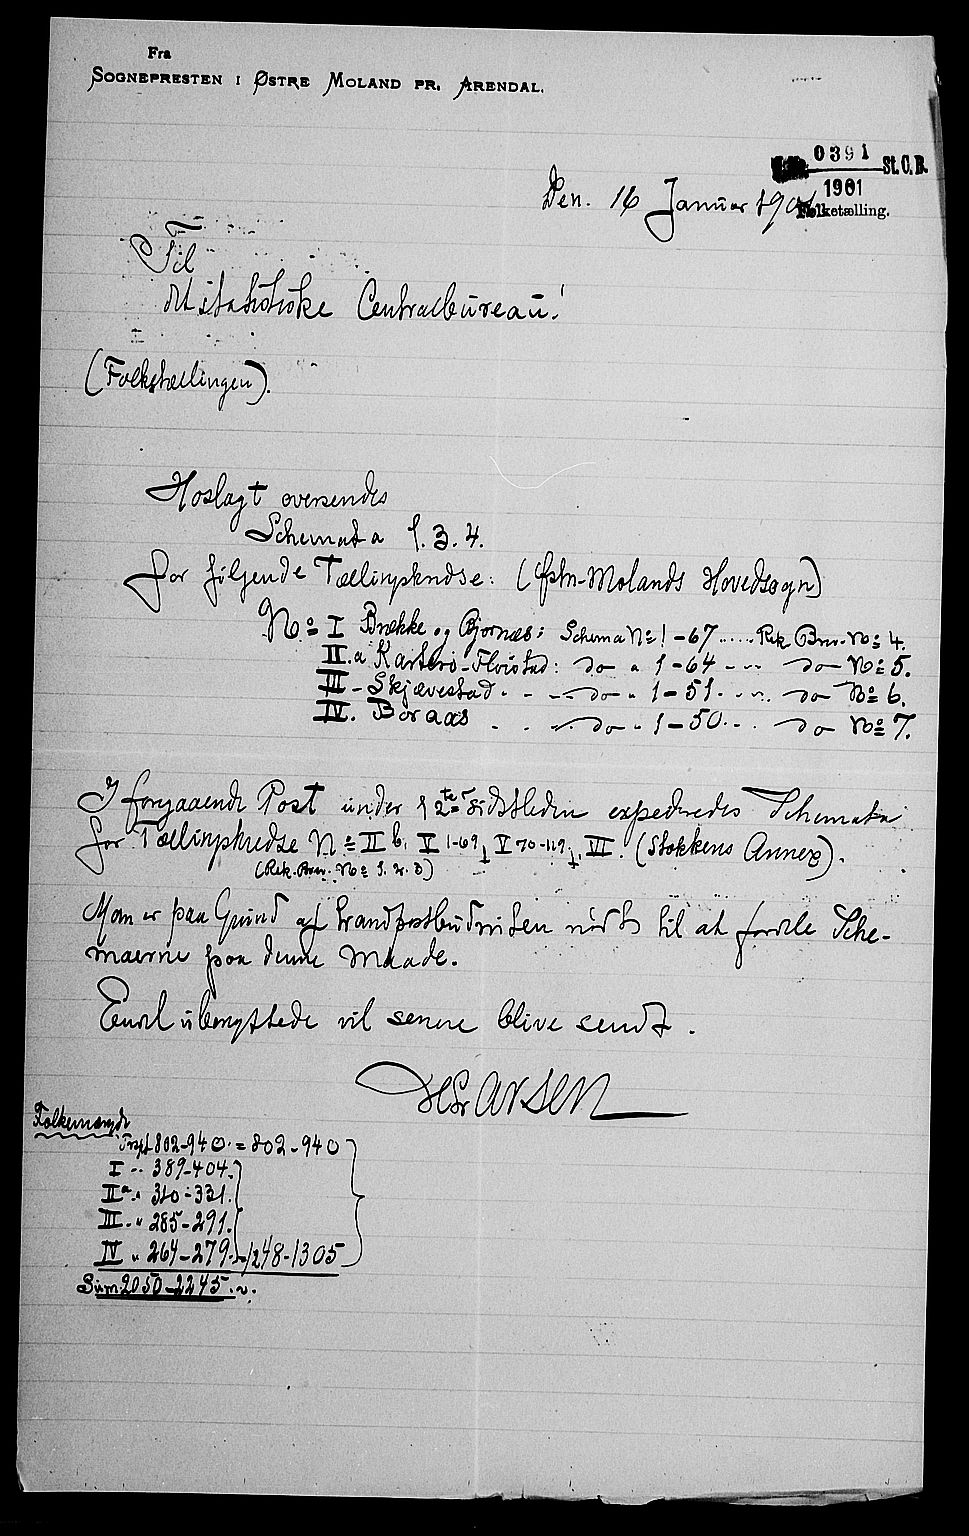 Fra
SOGNEPRESTEN I ØSTRE MOLAND PR. ARENDAL.
0391 St. C. B.
1901
Folketælling.
Den. 16 Januar 1901
Til
det statistiske Centralbureau!
(Folketællingen).
Hoslagt oversendes
Schemata 1. 3. 4.
for følgende Tællingskredse: (Østre-Molands Hovedsogn)
No I Brække og Bjornæs: Schema No 1-67 ..... Rek. Brev. No 4.
II.a Kasterø-Flosstad: do " 1-64 - - do No 5.
III - Skjævestad - - - do " 1-51. - .. do No 6.
IV. Boraas . . - do " 1-50 - . do No 7.
I forgaaende Post under 12te sidstleden expederedes Schemata
for Tællingskredse No II b, V 1-69, V 70-119, VI. (Stokkens Annex).
(Rek. Brev. No 1. 2. 3)
Man er paa Grund af Landpostbudruten nødt til at fordele Sche-
maerne paa denne Maade.
Evnt. ubenyttede vil senere blive sendt.
Larsen
Folkemængde
802-940 = 802-940
I .. 389-404.
IIa. " 310-331.
III. " 285-291.
IV " 264-279. 1248-1305
Sum 2050-2245.